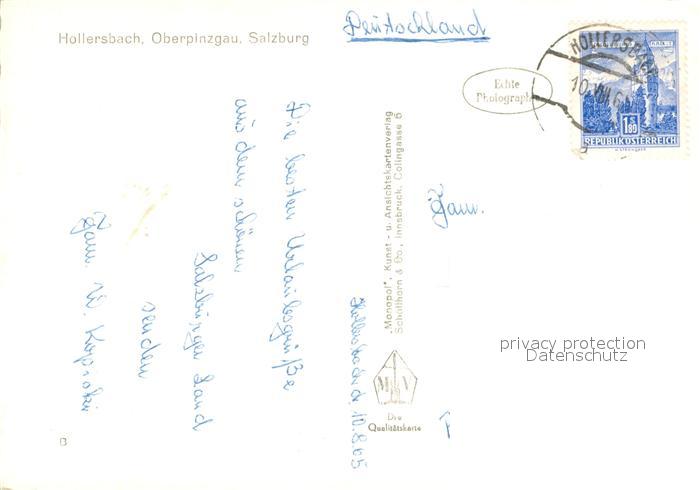 Hollersbach, Oberpinzgau, Salzburg
Deutschland
Echte
Photographie
HOLLERSBACH
10.VIII.6
1.80
S
REPUBLIK ÖSTERREICH
Hollersbach d, 10.8.65
Die besten Urlaubsgrüße
aus dem schönen
Salzburger Land
senden
Fam. W.
"Monopol", Kunst- u. Ansichtskartenverlag
Schöllhorn & Co., Innsbruck, Colingasse 6
M V
Die
Qualitätskarte
Fam.
privacy protection
Datenschutz
B